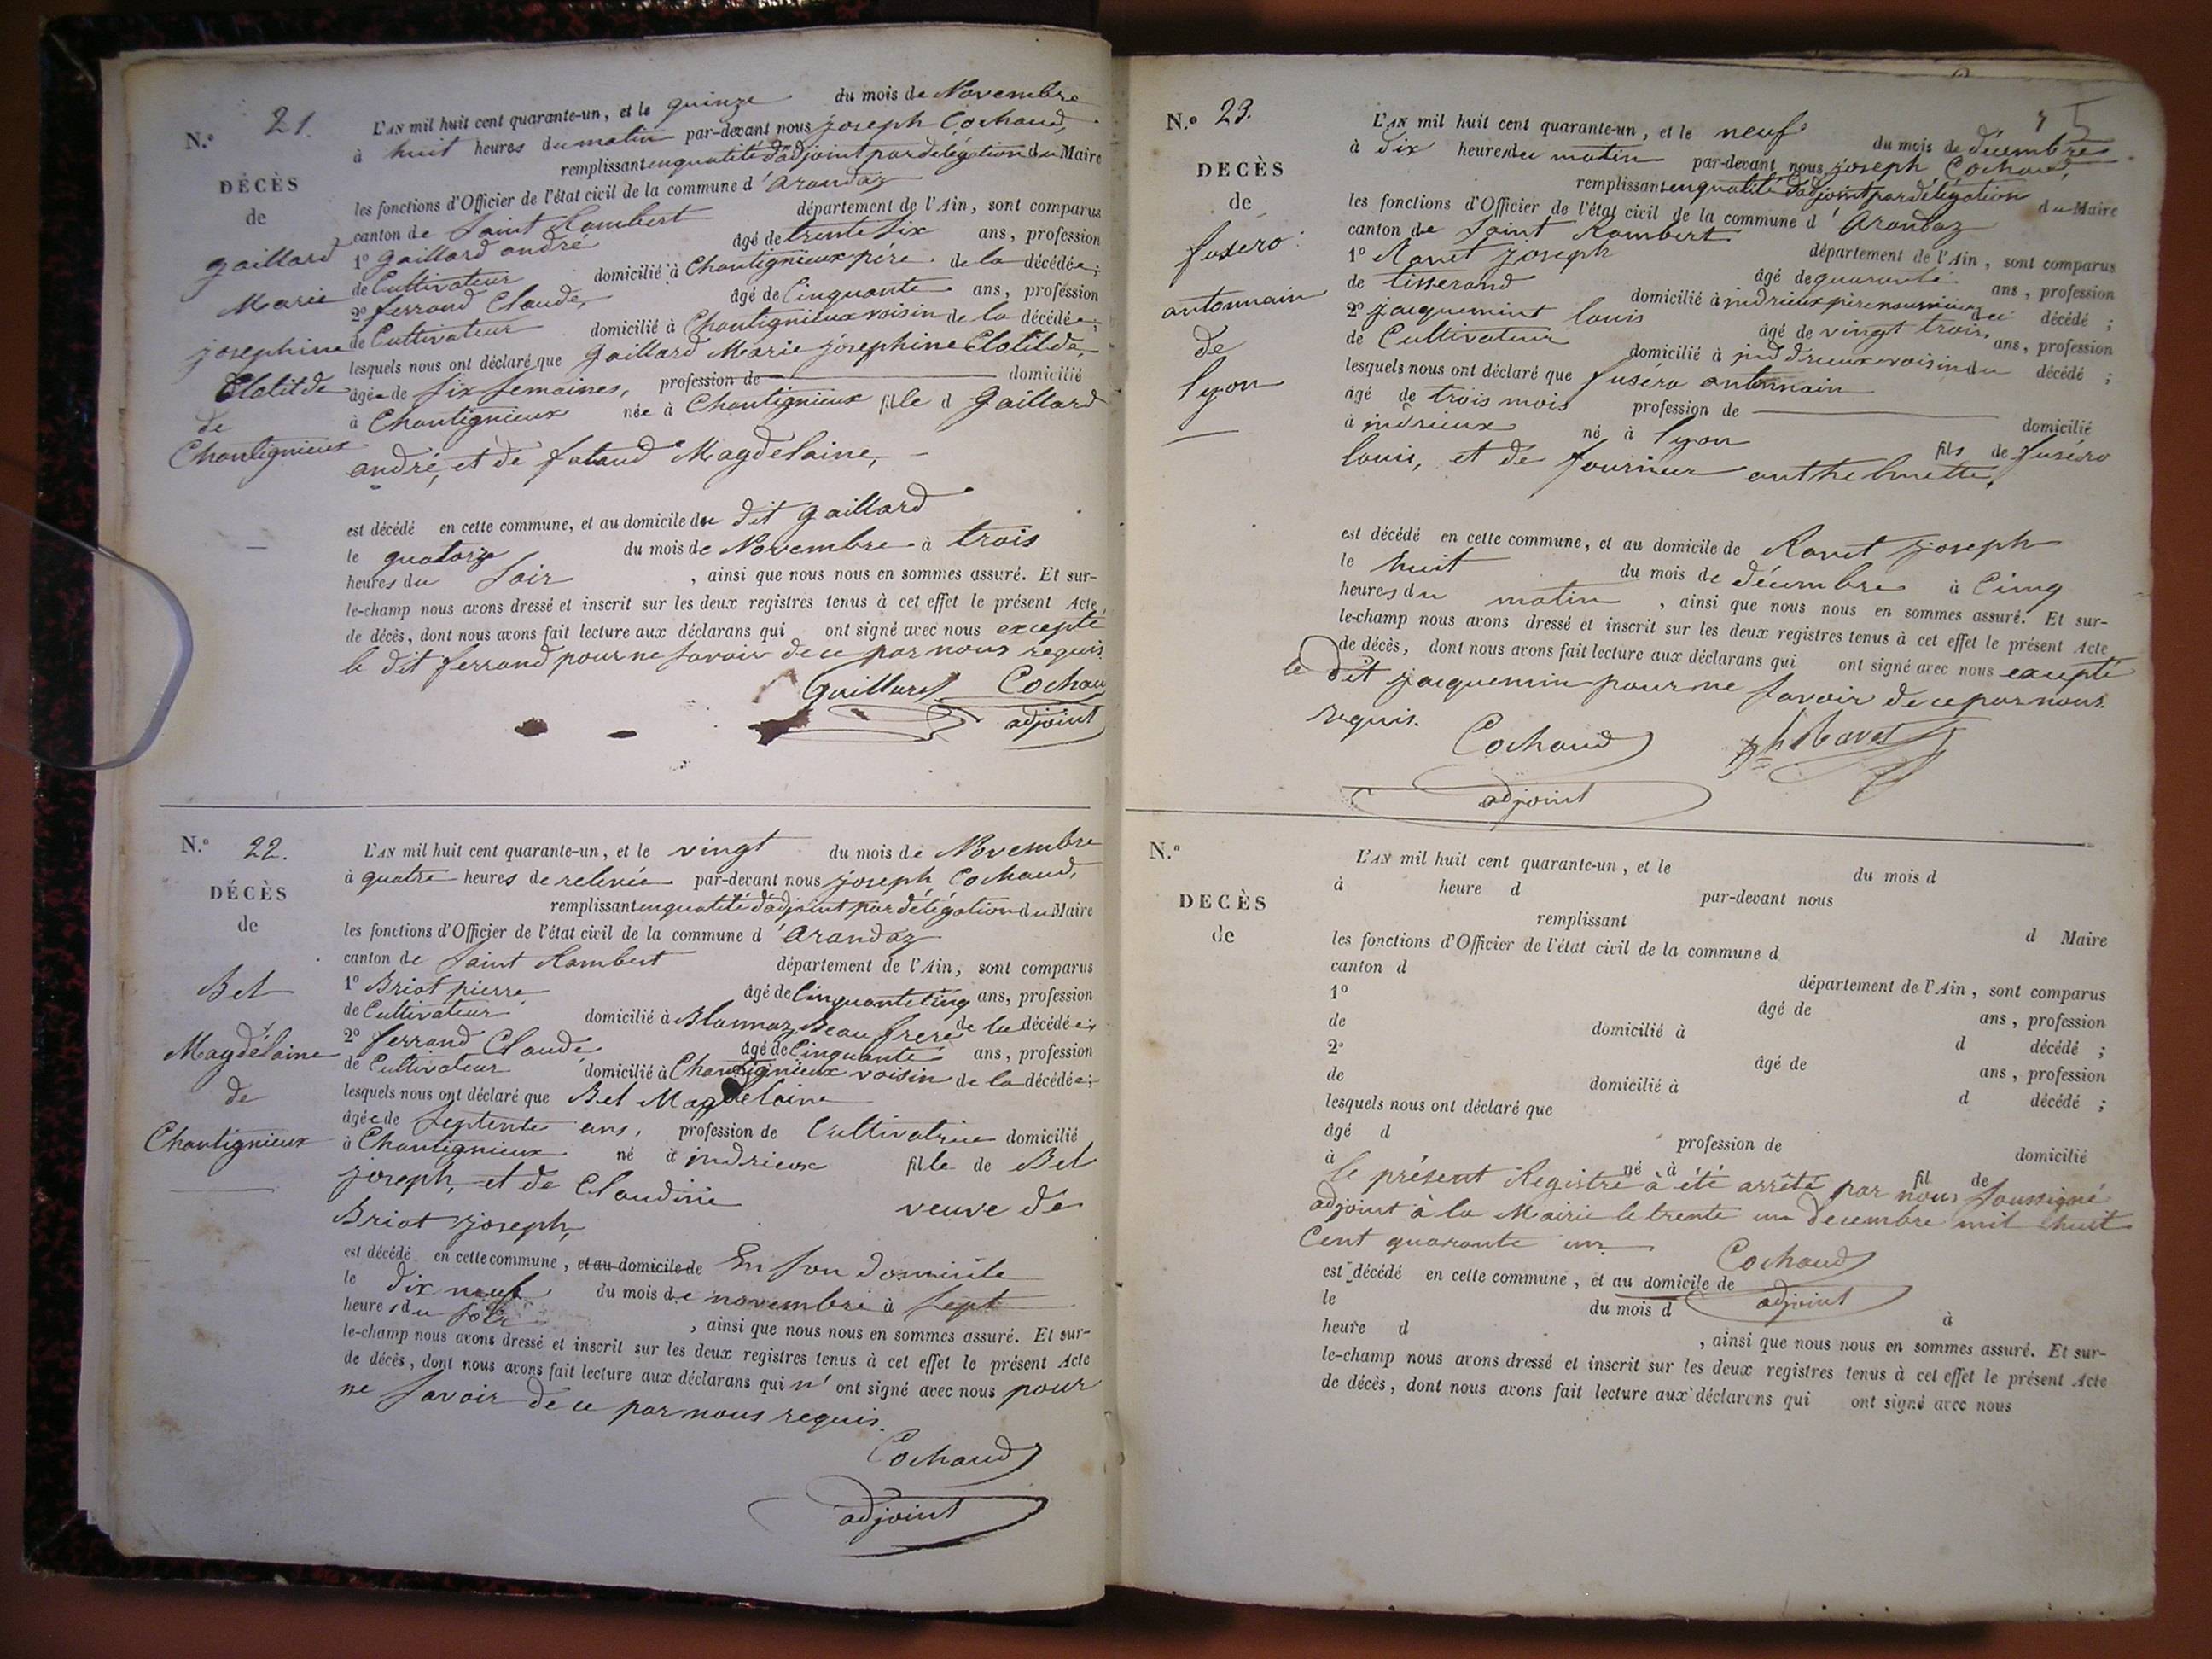 N.° 21.
DÉCÈS
de
gaillard
Marie
josephine
Clotilde
de
Chantignieux
L'AN mil huit cent quarante-un, et le quinze du mois de Novembre
à huit heures du matin par-devant nous joseph Cochaud,
remplissant en qualité d'adjoint par délégation du Maire
les fonctions d'Officier de l'état civil de la commune d'arandaz
canton de Saint Rambert département de l'Ain, sont comparus
1° gaillard andré âgé de trente six ans, profession
de Cultivateur domicilié à Chantignieux père de la décédée;
2° ferrand Claude, âgé de Cinquante ans, profession
de Cultivateur domicilié à Chantignieux voisin de la décédée;
lesquels nous ont déclaré que gaillard Marie josephine Clotilde,
âgée de six semaines, profession de domicilié
à Chantignieux née à Chantignieux fille d gaillard
andré, et de Magdelaine,
est décédé en cette commune, et au domicile du dit gaillard
le quatorze du mois de Novembre à trois
heures du soir, ainsi que nous nous en sommes assuré. Et sur-
le-champ nous avons dressé et inscrit sur les deux registres tenus à cet effet le présent Acte
de décès, dont nous avons fait lecture aux déclarans qui ont signé avec nous excepté
le dit ferrand pour ne savoir de ce par nous requis.
Gaillard Cochaud
adjoint
N.° 22.
DÉCÈS
de
Bel
Magdelaine
de
Chantignieux
L'AN mil huit cent quarante-un, et le vingt du mois de Novembre
à quatre heures de relevée par-devant nous joseph Cochaud,
remplissant en qualité d'adjoint par délégation du Maire
les fonctions d'Officier de l'état civil de la commune d'arandaz
canton de Saint Rambert département de l'Ain, sont comparus
1° Briot pierre âgé de Cinquante cinq ans, profession
de Cultivateur domicilié à Blannaz Beau frere de la décédée;
2° ferrand Claude âgé de Cinquante ans, profession
de Cultivateur domicilié à Chantignieux voisin de la décédée;
lesquels nous ont déclaré que Bel Magdelaine
âgée de septente ans, profession de Cultivatrice domicilié
à Chantignieux né à indrieux fille de Bel
joseph, et de Claudine veuve de
Briot joseph,
est décédé en cette commune, et au domicile de En son domicile
le dix neuf du mois de novembre à sept
heures du soir, ainsi que nous nous en sommes assuré. Et sur-
le-champ nous avons dressé et inscrit sur les deux registres tenus à cet effet le présent Acte
de décès, dont nous avons fait lecture aux déclarans qui n'ont signé avec nous pour
ne savoir de ce par nous requis.
Cochaud
adjoint
N.° 23.
DECÈS
de
fuséro
antonnain
de
lyon
L'AN mil huit cent quarante-un, et le neuf du mois de décembre
à dix heures du matin par-devant nous joseph Cochaud,
remplissant en qualité d'adjoint par délégation du Maire
les fonctions d'Officier de l'état civil de la commune d'arandaz
canton de Saint Rambert département de l'Ain, sont comparus
1° Ravet joseph âgé de quarante ans, profession
de tisserand domicilié à indrieux père nourricier du décédé;
2° jacquemint louis âgé de vingt trois ans, profession
de Cultivateur domicilié à inddrieux voisin du décédé;
lesquels nous ont déclaré que fuséro antonnain
âgé de trois mois profession de domicilié
à indrieux né à lyon fils de fuséro
louis, et de fournieur anthelmette,
est décédé en cette commune, et au domicile de Ravet joseph
le huit du mois de décembre à Cinq
heures du matin, ainsi que nous nous en sommes assuré. Et sur-
le-champ nous avons dressé et inscrit sur les deux registres tenus à cet effet le présent Acte
de décès, dont nous avons fait lecture aux déclarans qui ont signé avec nous excepté
le dit jacquemin pour ne savoir de ce par nous.
requis.
Cochaud Ravet
adjoint
N.°
DECÈS
de
L'AN mil huit cent quarante-un, et le du mois d
à heure d par-devant nous
remplissant d Maire
les fonctions d'Officier de l'état civil de la commune d
canton d département de l'Ain, sont comparus
1° âgé de ans, profession
de domicilié à d décédé;
2° âgé de ans, profession
de domicilié à d décédé;
lesquels nous ont déclaré que
âgé d profession de domicilié
à né à fil de
le présent Registre a été arrêté par nous soussigné
adjoint à la Mairie le trente un decembre mil huit
Cent quarante un.
Cochaud
adjoint
est décédé en cette commune, et au domicile de
le du mois d à
heure d, ainsi que nous nous en sommes assuré. Et sur-
le-champ nous avons dressé et inscrit sur les deux registres tenus à cet effet le présent Acte
de décès, dont nous avons fait lecture aux déclarans qui ont signé avec nous